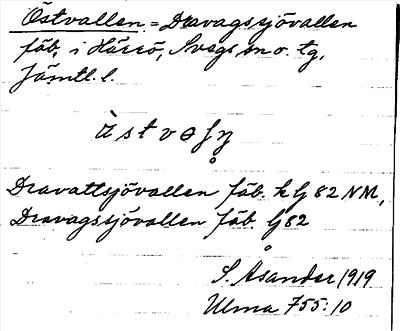 Östvallen = Dravagssjövallen
fäb. i Härrö, Svegs sn o. tg,
Jämtl. l.
Dravattsjövallen fäb. k G 82 NM,
Dravagssjövallen fäb. G 82
S. Åsander 1919
Ulma 755:10